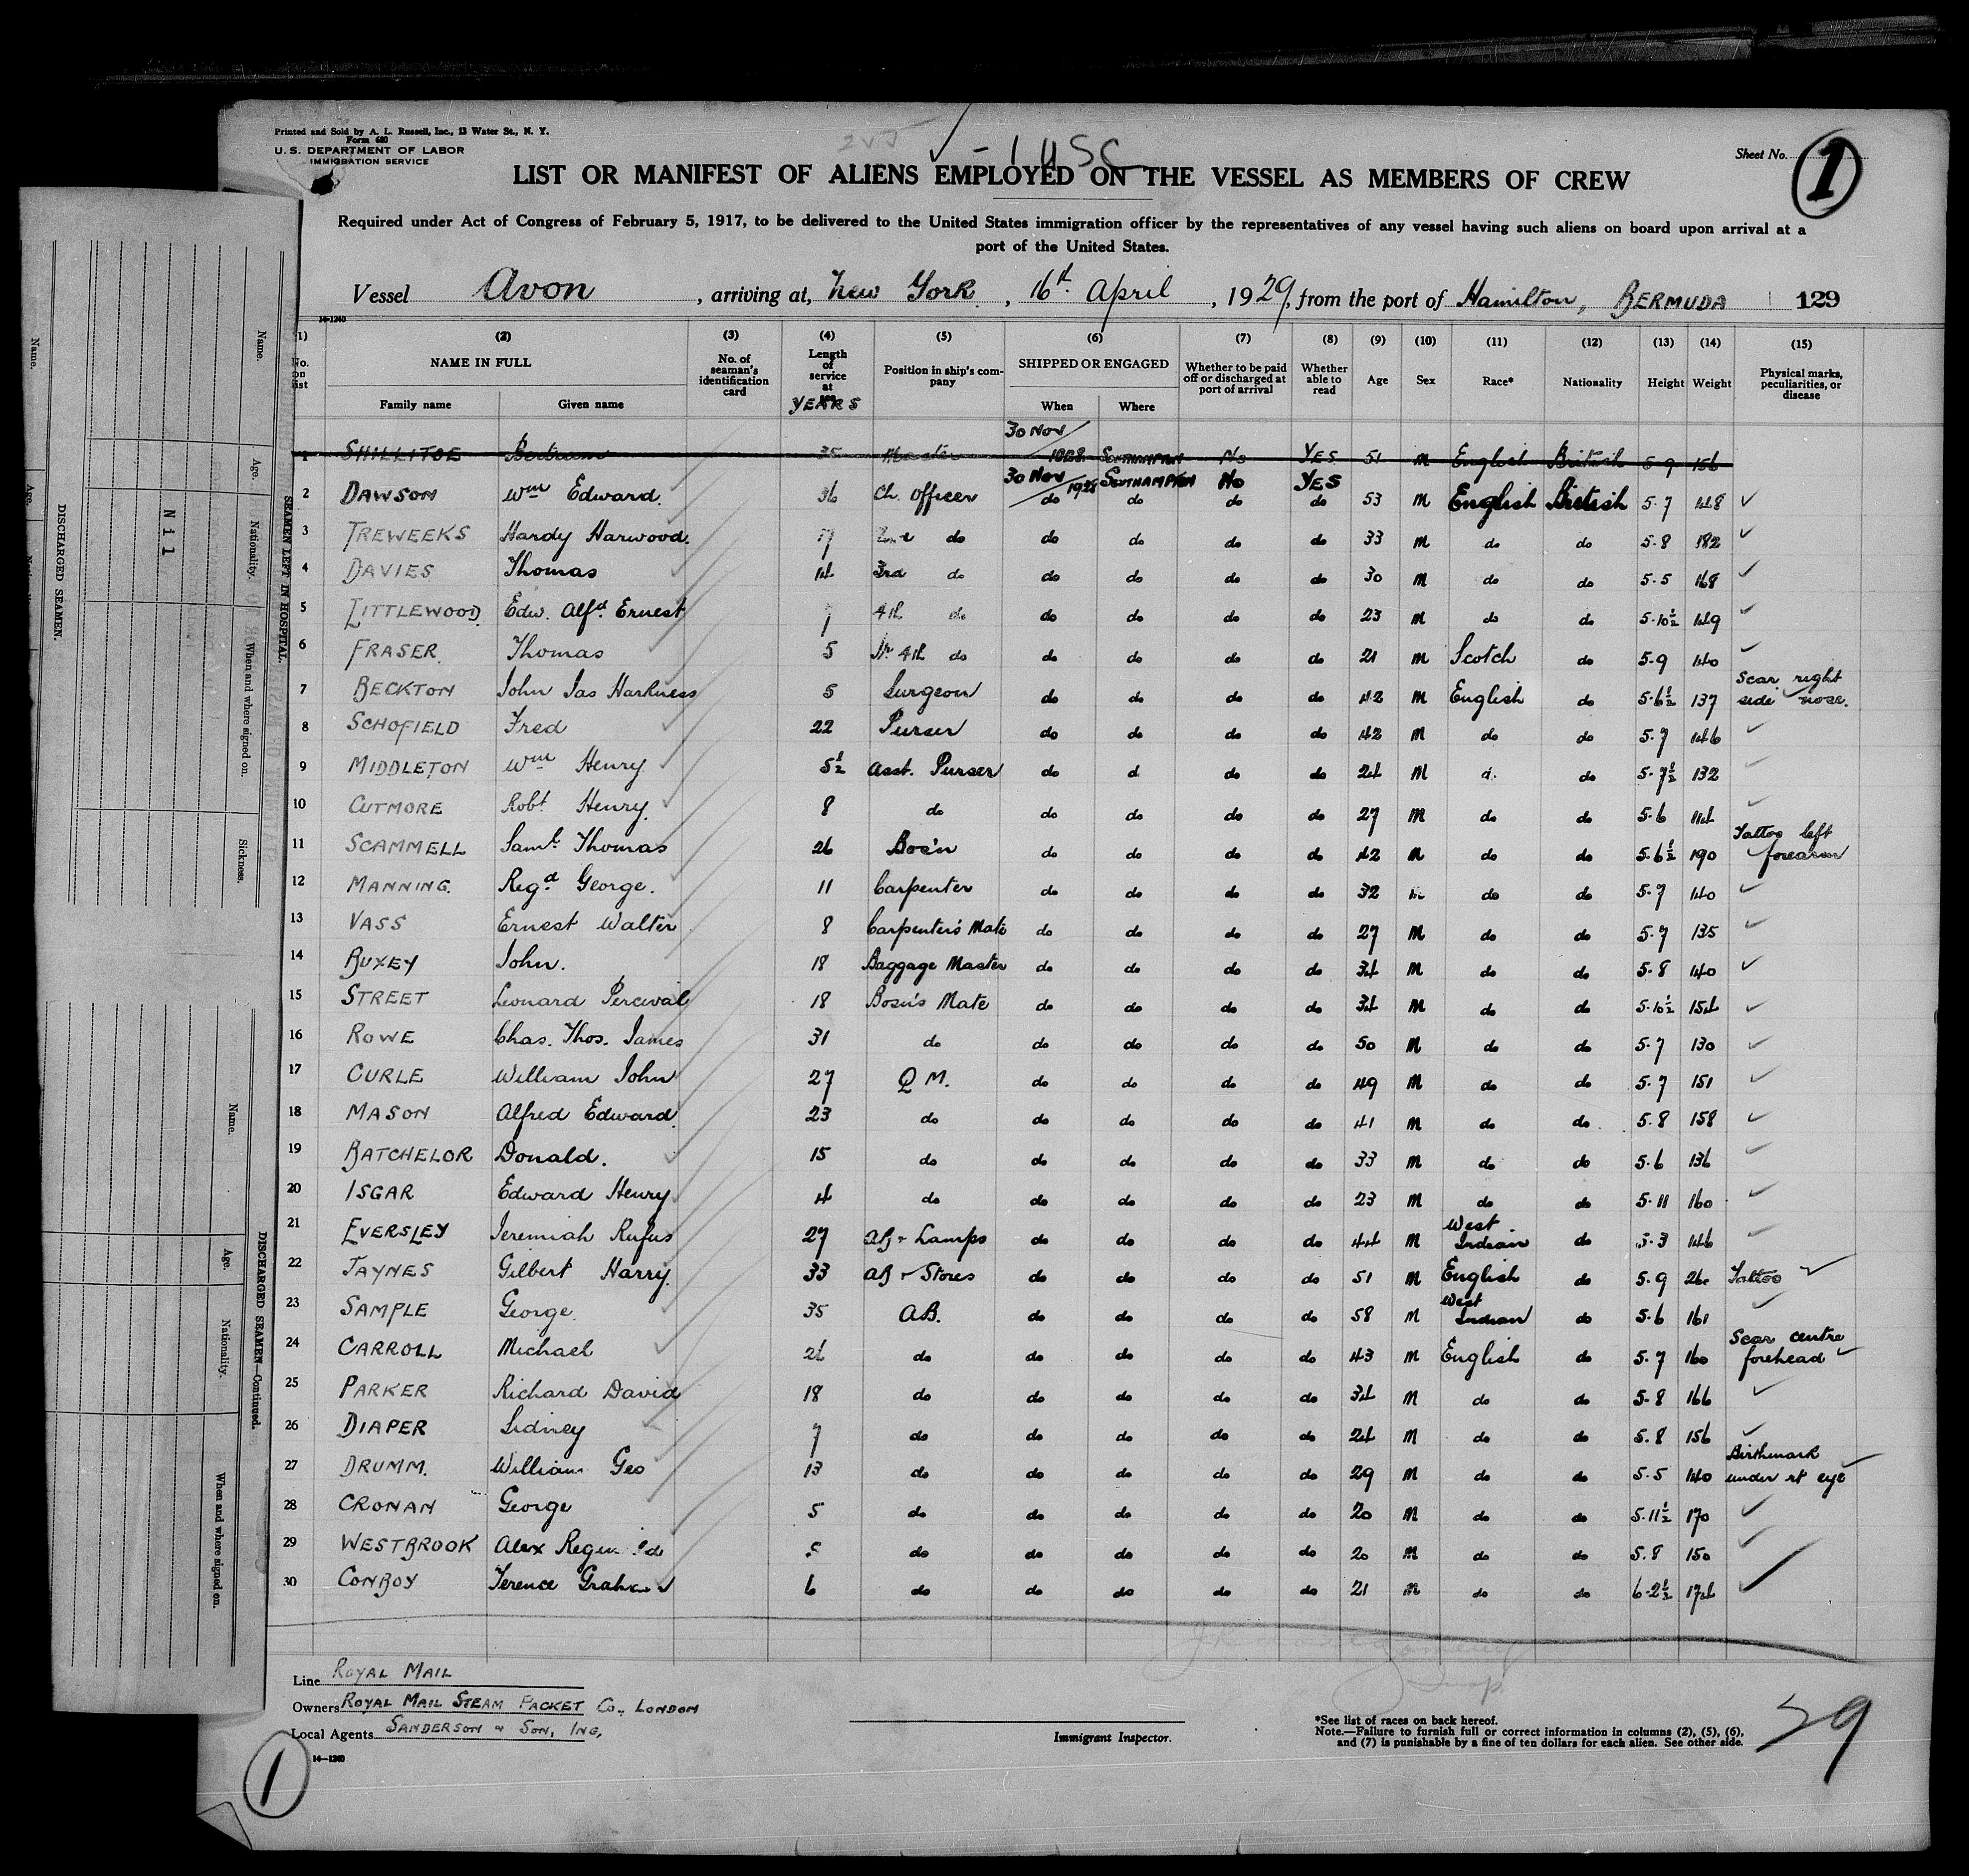 Printed and Sold by A. L. Russell, Inc., 13 Water St., N. Y.
Form 680
U. S. DEPARTMENT OF LABOR
IMMIGRATION SERVICE
Sheet No. 1
1 USC
LIST OR MANIFEST OF ALIENS EMPLOYED ON THE VESSEL AS MEMBERS OF CREW
Required under Act of Congress of February 5, 1917, to be delivered to the United States immigration officer by the representatives of any vessel having such aliens on board upon arrival at a
port of the United States.
Vessel Avon, arriving at, New York, 16th April, 1929, from the port of Hamilton, BERMUDA 129
14-1240
(1) No. on list (2) NAME IN FULL Family name Given name (3) No. of seaman's identification card (4) Length of service at YEARS (5) Position in ship's company (6) SHIPPED OR ENGAGED When Where (7) Whether to be paid off or discharged at port of arrival (8) Whether able to read (9) Age (10) Sex (11) Race* (12) Nationality (13) Height (14) Weight (15) Physical marks, peculiarities, or disease
1 SHILLITOE Bertram 35 Master 30 Nov 1928 SOUTHAMPTON No YES 51 M English British 5-9 156
2 DAWSON Wm Edward. 36 Ch. Officer 30 Nov 1928 do SOUTHAMPTON do No do YES do 53 M English British 5-7 148
3 TREWEEKS Hardy Harwood. 17 2nd do do do do do 33 M do do 5-8 182
4 DAVIES Thomas 14 3rd do do do do do 30 M do do 5-5 168
5 LITTLEWOOD. Edw. Alfd. Ernest 7 4th do do do do do 23 M do do 5-10½ 149
6 FRASER. Thomas 5 Jr 4th do do do do do 21 M Scotch do 5-9 140
7 BECKTON John Jas Harkness 5 Surgeon do do do do 42 M English do 5-6½ 137 Scar right side nose.
8 SCHOFIELD Fred 22 Purser do do do do 42 M do do 5-7 146
9 MIDDLETON Wm Henry 5½ Asst. Purser do d do do 24 M d. do 5-7½ 132
10 CUTMORE Robt Henry. 8 do do do do do 27 M do do 5-6 114
11 SCAMMELL Saml. Thomas 26 Bos'n do do do do 42 M do do 5-6½ 190 Tattoo left forearm
12 MANNING. Regd. George. 11 Carpenter do do do do 32 M do do 5-7 140
13 VASS Ernest Walter 8 Carpenter's Mate do do do do 27 M do do 5-7 135
14 BUXEY John. 18 Baggage Master do do do do 34 M do do 5-8 140
15 STREET Leonard Percival 18 Bosn's Mate do do do do 34 M do do 5-10½ 154
16 ROWE Chas. Thos. James 31 do do do do do 50 M do do 5-7 130
17 CURLE William John 27 Q M. do do do do 49 M do do 5-7 151
18 MASON Alfred Edward. 23 do do do do do 41 M do do 5-8 158
19 BATCHELOR Donald. 15 do do do do do 33 M do do 5-6 136
20 ISGAR Edward Henry 4 do do do do do 23 M do do 5-11 160
21 EVERSLEY Jeremiah Rufus 27 AB - Lamps do do do do 44 M West Indian do 5-3 146
22 JAYNES Gilbert Harry. 33 AB - Stores do do do do 51 M English do 5-9 Tattoo
23 SAMPLE George. 35 A.B. do do do do 58 M West Indian do 5-6 161
24 CARROLL Michael do do do do do 43 M English do 5-7 160 Scar centre forehead
25 PARKER Richard David 18 do do do do do 34 M do do 5-8 166
26 DIAPER Sidney 7 do do do do do 24 M do do 5-8 156
27 DRUMM. William Geo 13 do do do do do 29 M do do 5-5 140 Birthmark under rt eye
28 CRONAN George 5 do do do do do 20 M do do 5-11½ 170
29 WESTBROOK Alex 5 do do do do do 20 M do do 5-8 150
30 CONBOY Terence Graham 6 do do do do do 21 M do do 6-2½ 174
Line ROYAL MAIL
Owners ROYAL MAIL STEAM PACKET Co., LONDON
Local Agents SANDERSON & SON, INC,
14-1240
1
Immigrant Inspector.
*See list of races on back hereof.
Note.—Failure to furnish full or correct information in columns (2), (5), (6),
and (7) is punishable by a fine of ten dollars for each alien. See other side.
29
SEAMEN LEFT IN HOSPITAL.
Name. Age. Nationality. When and where signed on. Sickness.
Nil
DISCHARGED SEAMEN.
Name. Age.
DISCHARGED SEAMEN—Continued.
Name. Age. Nationality. When and where signed on.